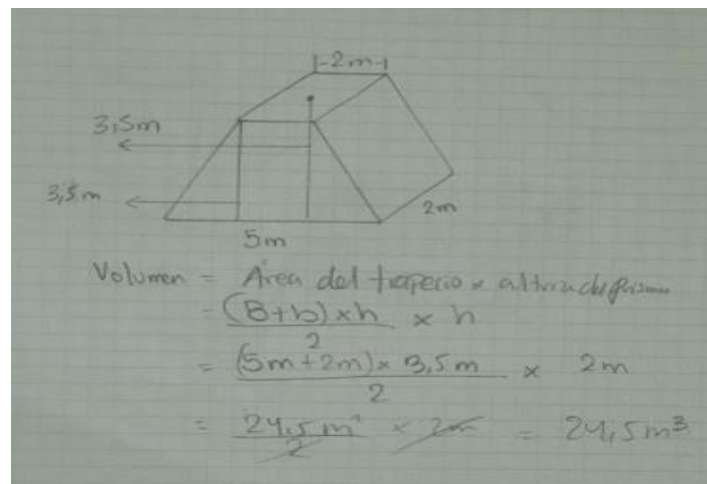 2m
3,5m
3,5m
2m
5m
Volumen = Área del trapecio x altura del prisma
= (B+b) x h x h
2
= (5m+2m) x 3,5m x 2m
2
= 24,5m² x 2m = 24,5m³
2